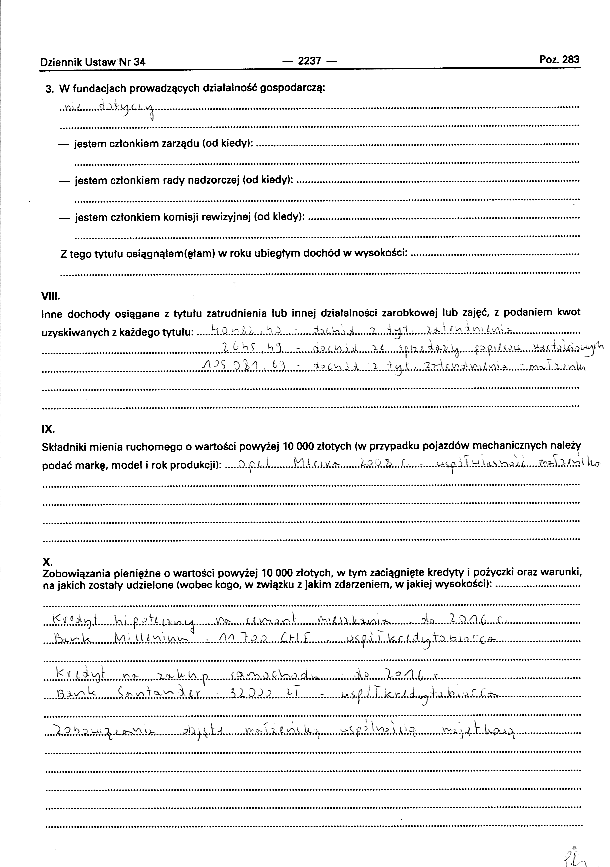 Dziennik Ustaw Nr 34 — 2237 — Poz. 283
3. W fundacjach prowadzących działalność gospodarczą:
nie dotyczy
— jestem członkiem zarządu (od kiedy):
— jestem członkiem rady nadzorczej (od kiedy):
— jestem członkiem komisji rewizyjnej (od kiedy):
Z tego tytułu osiągnąłem(ęłam) w roku ubiegłym dochód w wysokości:
VIII.
Inne dochody osiągane z tytułu zatrudnienia lub innej działalności zarobkowej lub zajęć, z podaniem kwot
uzyskiwanych z każdego tytułu: - dochód z tyt. zatrudnienia
2645,49 - dochód ze sprzedaży papierów wartościowych
- dochód z tyt. zatrudnienia - małżonka
IX.
Składniki mienia ruchomego o wartości powyżej 10 000 złotych (w przypadku pojazdów mechanicznych należy
podać markę, model i rok produkcji): Opel 2008 r - współwłasność
X.
Zobowiązania pieniężne o wartości powyżej 10 000 złotych, w tym zaciągnięte kredyty i pożyczki oraz warunki,
na jakich zostały udzielone (wobec kogo, w związku z jakim zdarzeniem, w jakiej wysokości):
Kredyt hipoteczny na remont mieszkania do 2016 r
Bank Millenium - 11700 CHF - współkredytobiorca
Kredyt na zakup samochodu do 2016 r
Bank Santander - 32000 zł - współkredytobiorca
Zobowiązania objęte małżeńską wspólnością majątkową